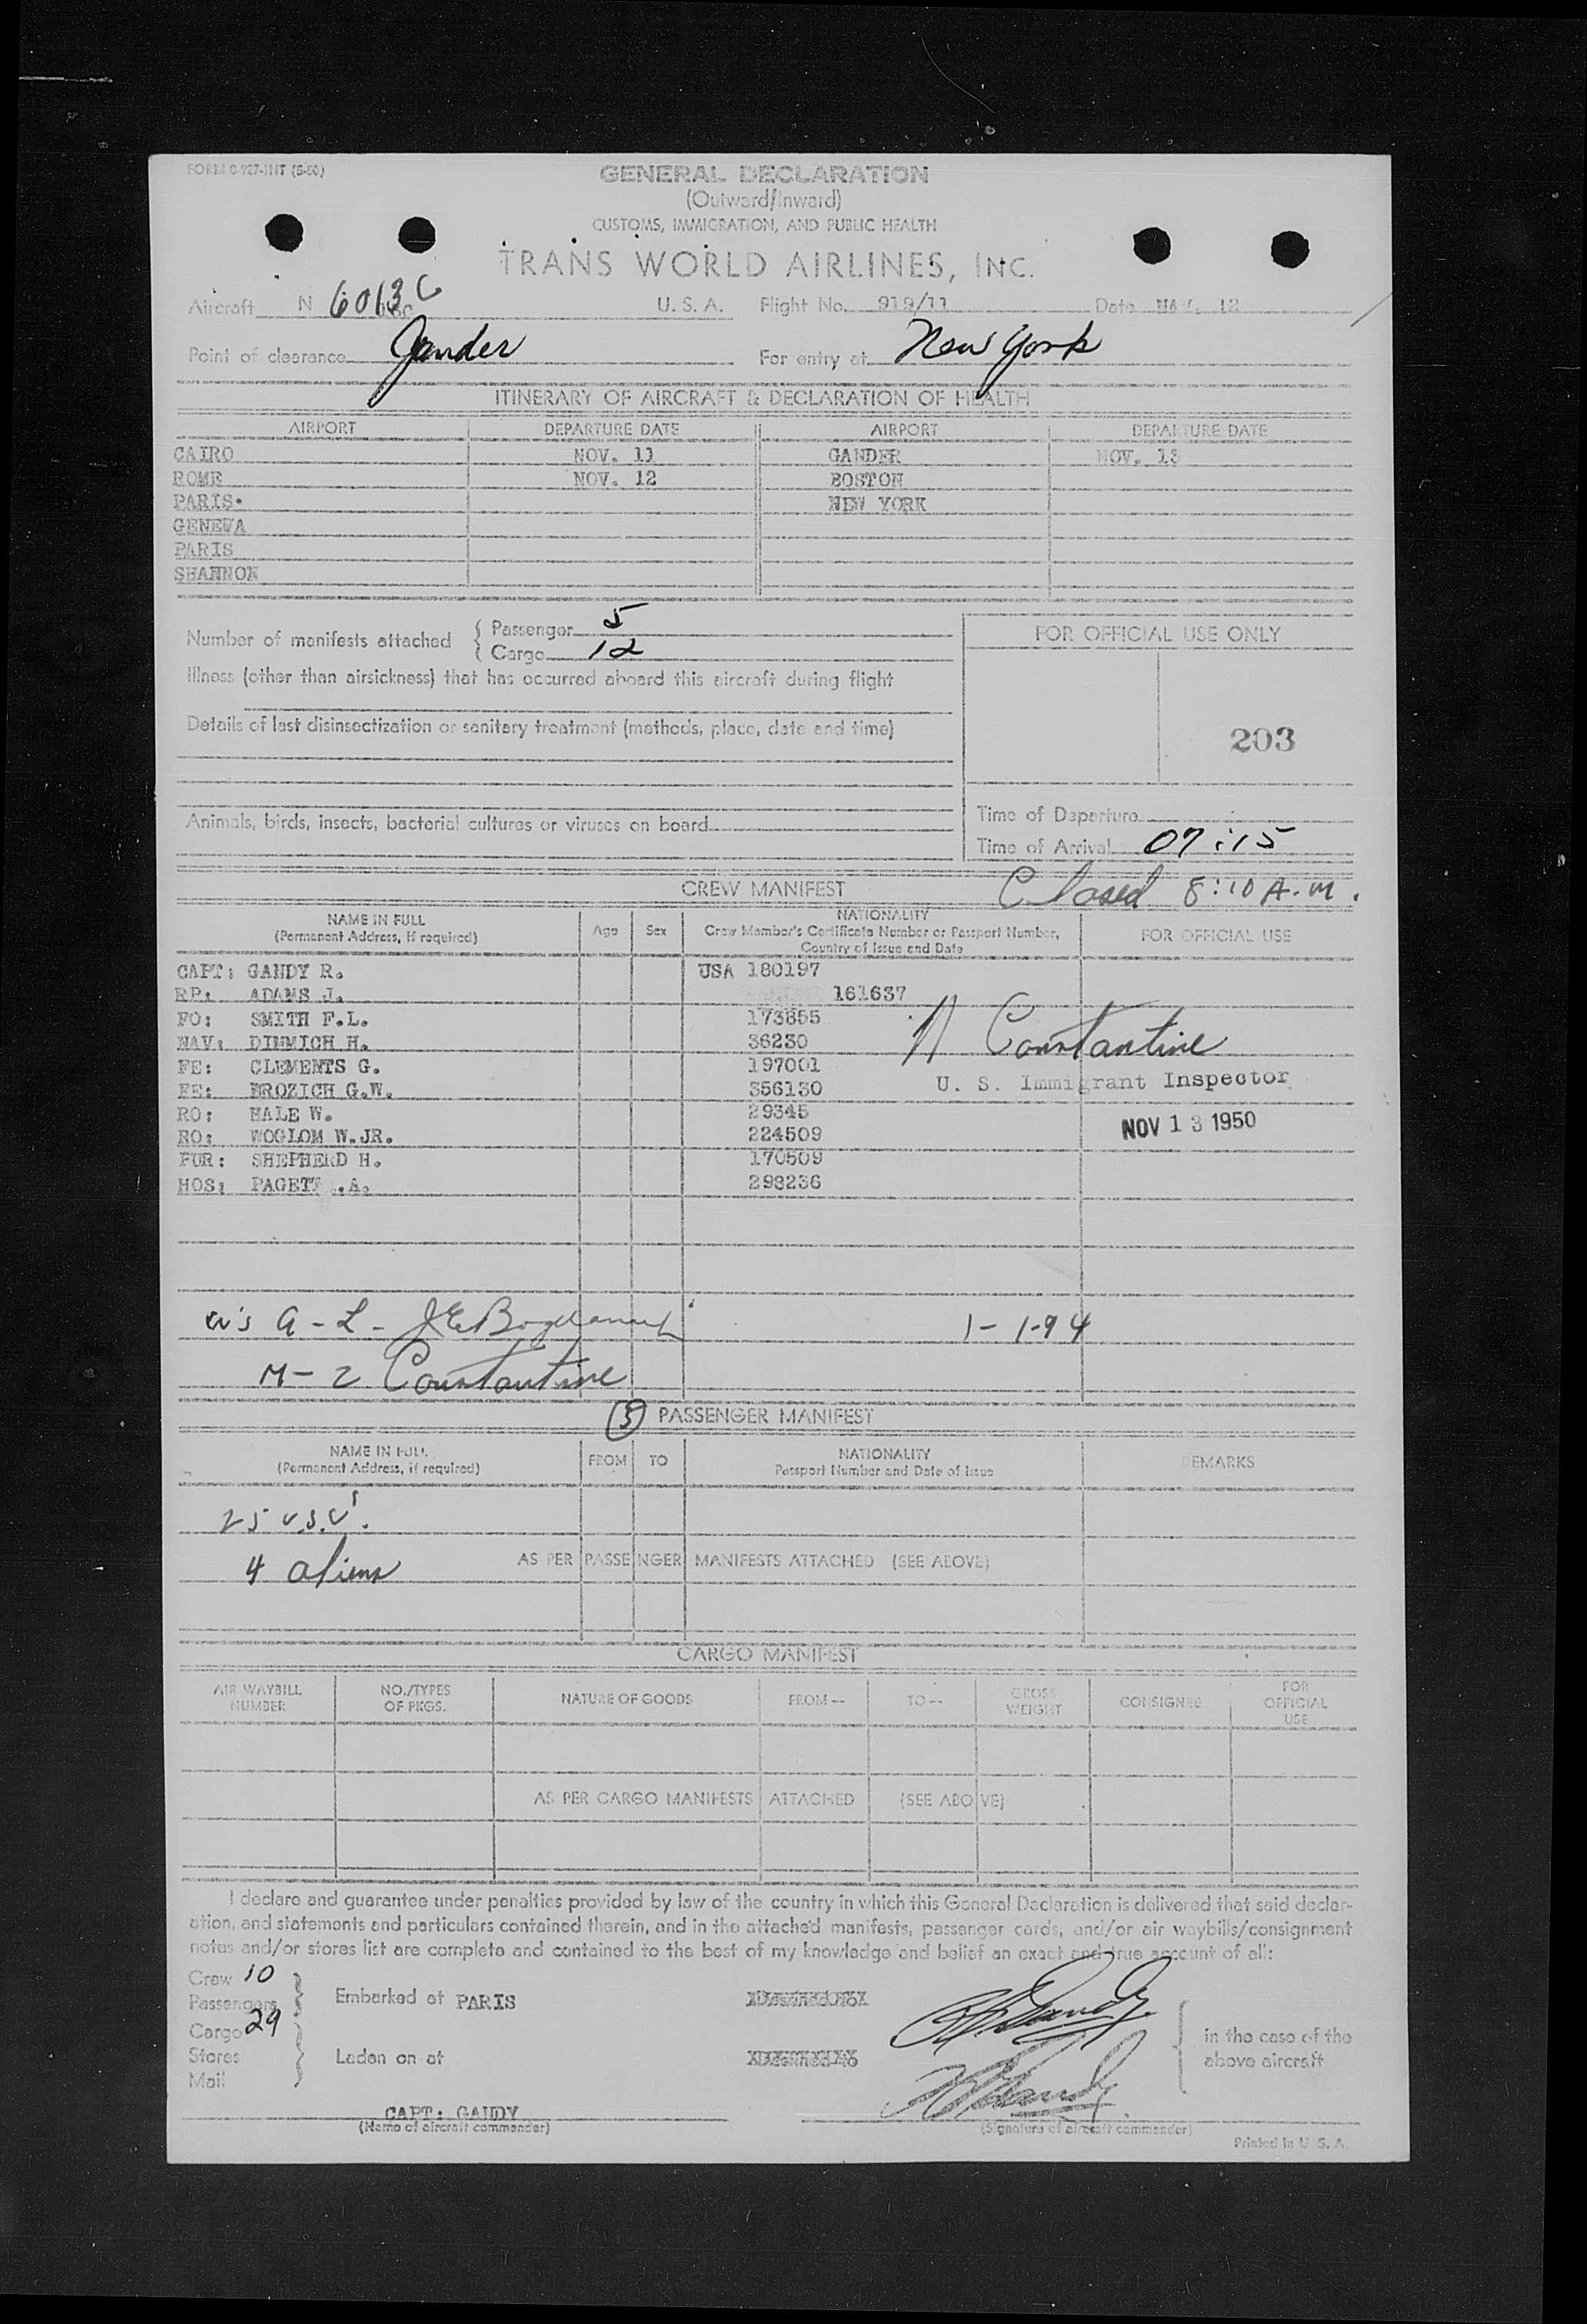 FORM 0-927-INT (5-50)
GENERAL DECLARATION
(Outward/Inward)
CUSTOMS, IMMIGRATION, AND PUBLIC HEALTH
TRANS WORLD AIRLINES, INC.
Aircraft N 6013C U. S. A. Flight No. 919/11 Date NOV. 12
Point of clearance Gander For entry at New York
ITINERARY OF AIRCRAFT & DECLARATION OF HEALTH
AIRPORT DEPARTURE DATE AIRPORT DEPARTURE DATE
CAIRO NOV. 11 GANDER NOV. 13
ROME NOV. 12 BOSTON
PARIS NEW YORK
GENEVA
PARIS
SHANNON
Number of manifests attached { Passenger 5
Cargo 12
FOR OFFICIAL USE ONLY
Illness (other than airsickness) that has occurred aboard this aircraft during flight
Details of last disinsectization or sanitary treatment (methods, place, date and time)
203
Animals, birds, insects, bacterial cultures or viruses on board
Time of Departure
Time of Arrival 07:15
CREW MANIFEST Closed 8:10 A.M.
NAME IN FULL
(Permanent Address, if required)
Age Sex
NATIONALITY
Crew Member's Certificate Number or Passport Number,
Country of Issue and Date
FOR OFFICIAL USE
CAPT: GANDY R. USA 180197
RP: ADAMS J. 161637
FO: SMITH F.L. 173855
NAV: DIMMICH H. 36230
FE: CLEMENTS G. 197001
FE: BROZICH G.W. 356130
RO: HALE W. 29345
RO: WOGLOM W.JR. 224509
PUR: SHEPHERD H. 170509
HOS: PAGETT .A. 298236
Constantine
U. S. Immigrant Inspector
NOV 13 1950
A - L - 1-1-94
M - Z Constantine
(5) PASSENGER MANIFEST
NAME IN FULL
(Permanent Address, if required)
FROM TO
NATIONALITY
Passport Number and Date of Issue
REMARKS
25 U.S.C's.
4 aliens AS PER PASSENGER MANIFESTS ATTACHED (SEE ABOVE)
CARGO MANIFEST
AIR WAYBILL
NUMBER
NO./TYPES
OF PKGS.
NATURE OF GOODS
FROM--
TO--
GROSS
WEIGHT
CONSIGNEE
FOR
OFFICIAL
USE
AS PER CARGO MANIFESTS ATTACHED (SEE ABOVE)
I declare and guarantee under penalties provided by law of the country in which this General Declaration is delivered that said declar-
ation, and statements and particulars contained therein, and in the attached manifests, passenger cards, and/or air waybills/consignment
notes and/or stores list are complete and contained to the best of my knowledge and belief an exact and true account of all:
Crew 10
Passengers 29
Embarked at PARIS
Cargo
Stores
Mail
Laden on at
in the case of the
above aircraft
CAPT: GANDY
(Name of aircraft commander)
(Signature of aircraft commander)
Printed in U. S. A.